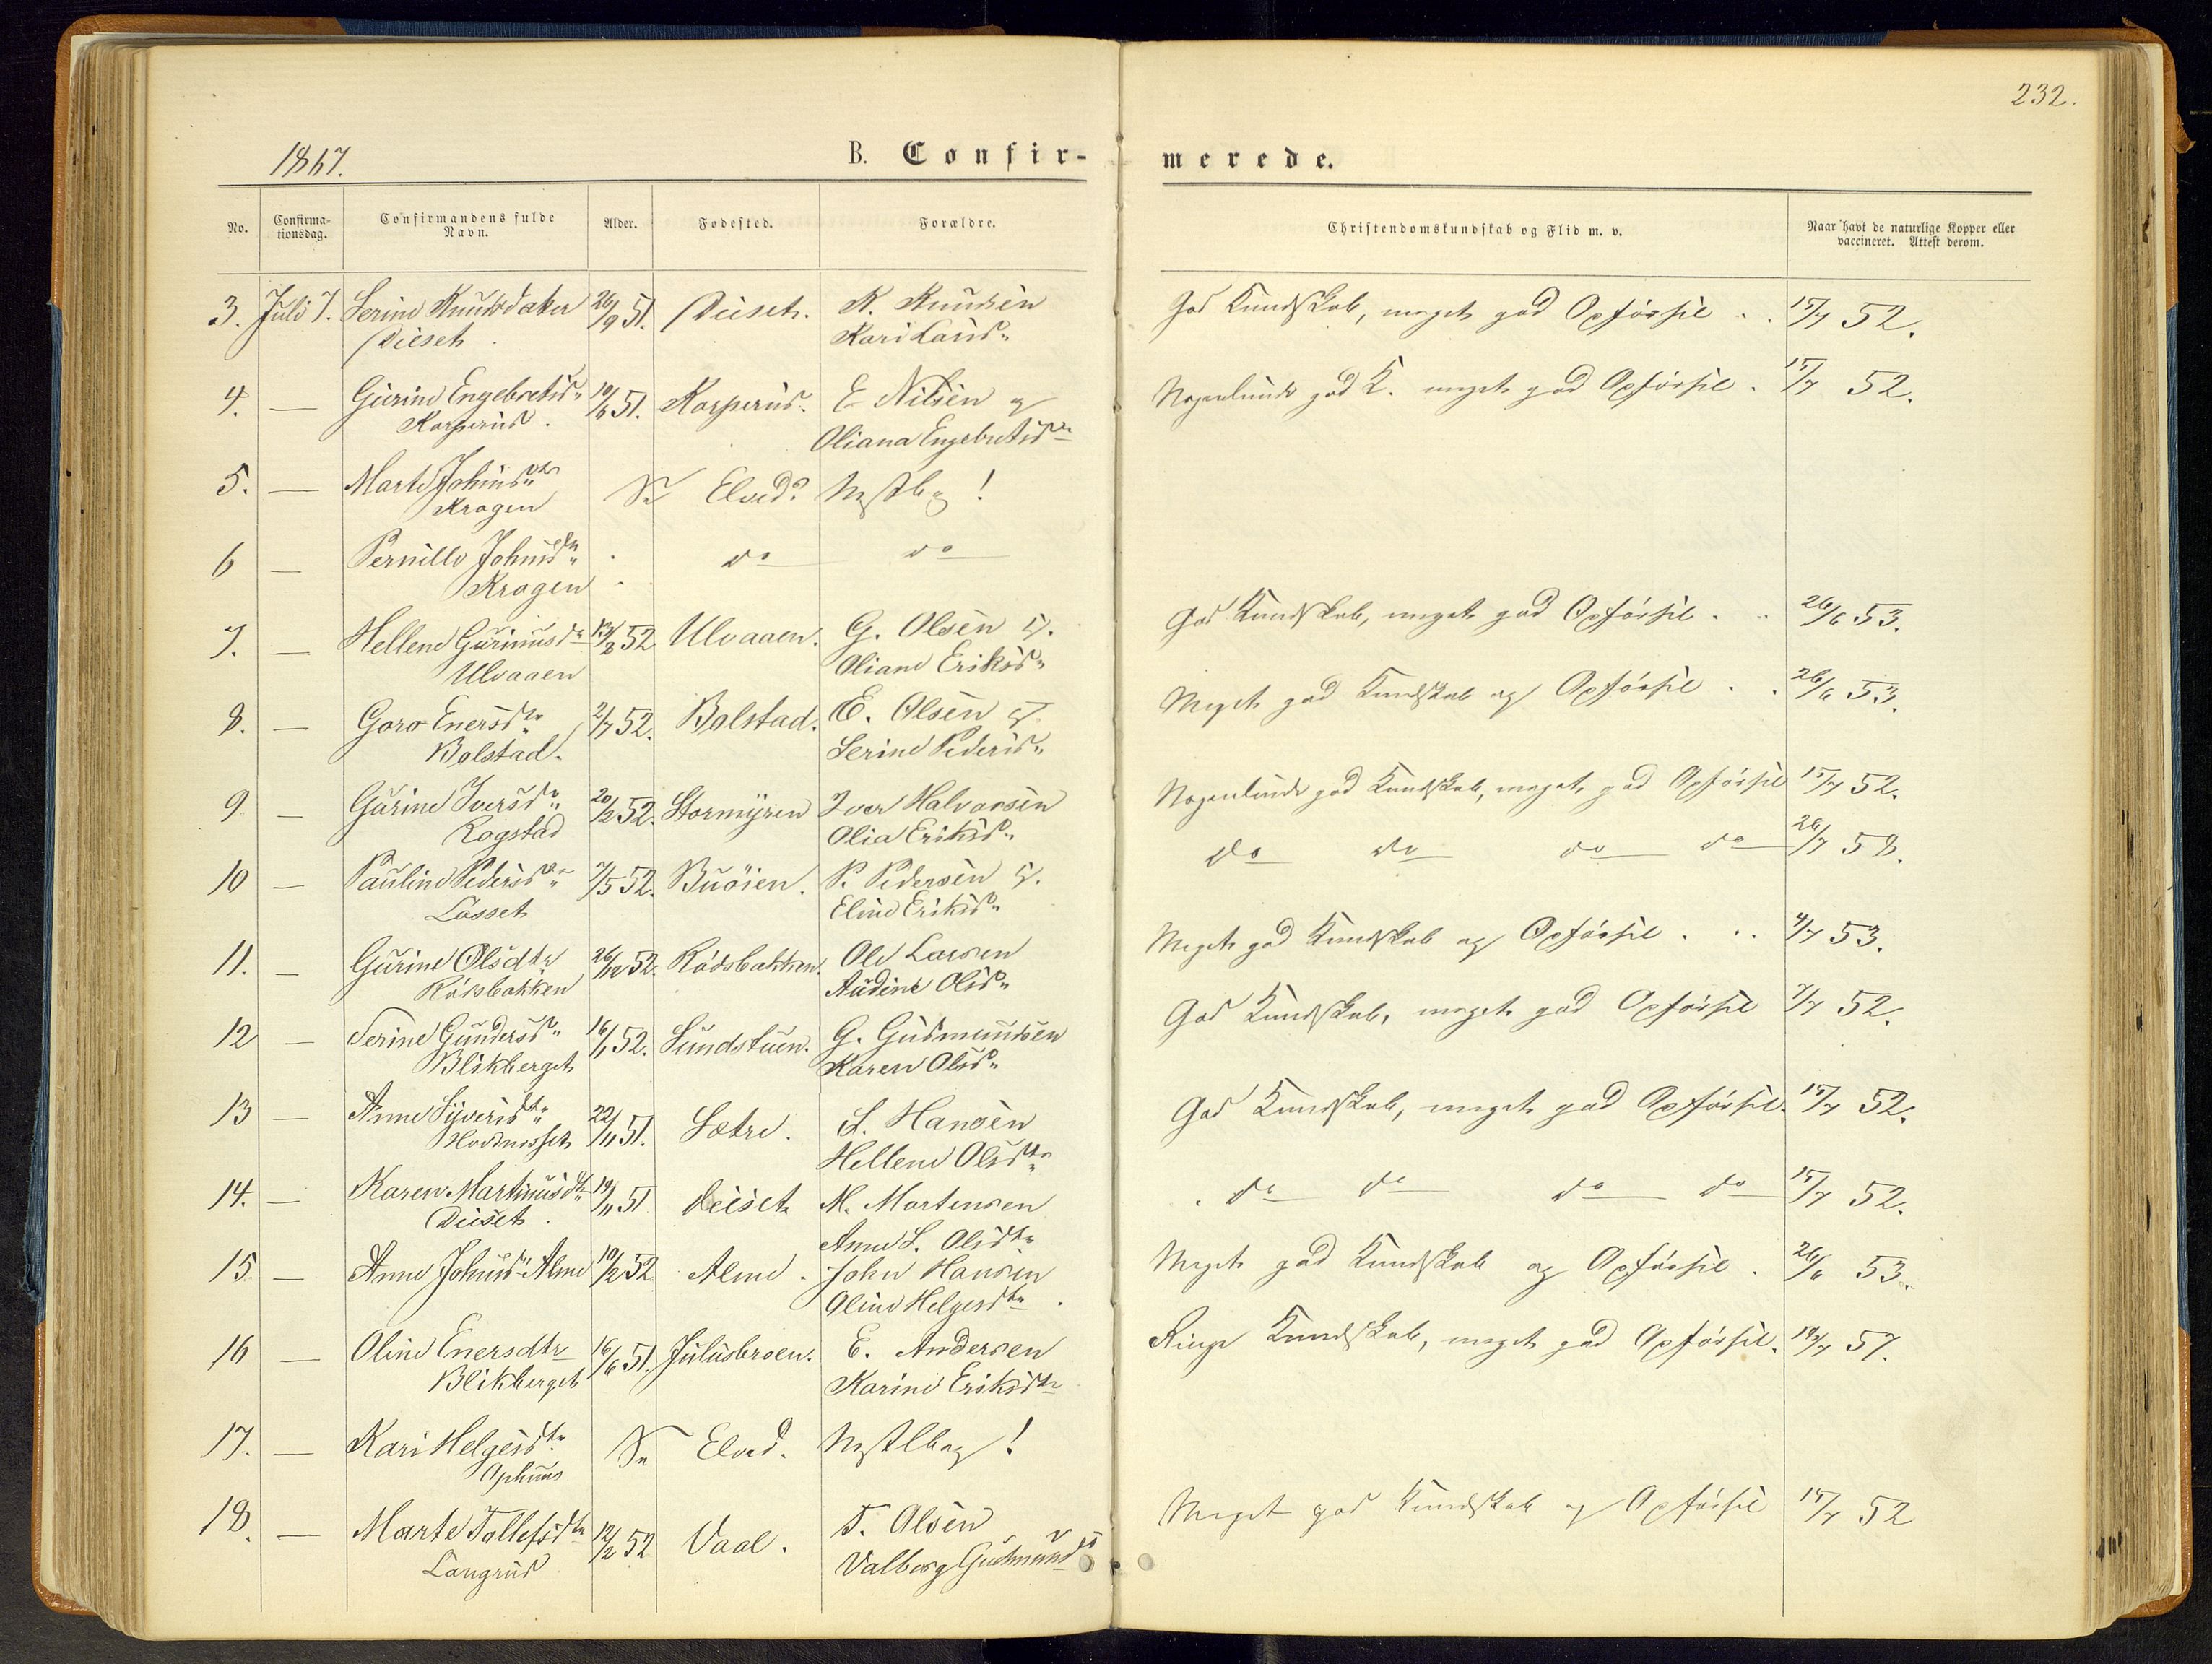 232.
1867.
B. Confir-
merede.
No.
Confirma-
tionsdag.
Confirmandens fulde
Navn.
Alder.
Fødested.
Forældre.
Christendomskundskab og Flid m. v.
Naar havt de naturlige Kopper eller
vaccineret. Attest derom.
3. Juli 7. Serine Knudsdatter 26/9 51. Dieset. K. Knudsen God Kundskab, meget god Opførsel . . 15/7 52.
Dieset. Kari Larsd.
4. — Gurine Engebretsd. 10/6 51. Kasperud. E. Nilsen og Nogenlunde god K. meget god Opførsel . 15/7 52.
Kasperud. Oliana Engebretsd.
5. — Marte Johnsdtr Se Elvd? Ngstbog!
Kragen
6 — Pernille Johnsdtr do do
Kragen
7. — Hellene Gurinusd. 13/8 52 Ulvaaen. G. Olsen og God Kundskab, meget god Opførsel . . 26/6 53.
Ulvaaen Oliane Eriksd.
8. — Goro Enersdtr 2/7 52. Bolstad. E. Olsen og Meget god Kundskab og Opførsel . . 26/6 53.
Bolstad. Serine Pedersd.
9 — Gurine Iversdtr 20/2 52. Stormyren Iver Halvorsen Nogenlunde god Kundskab, meget god Opførsel 15/7 52.
Rogstad Olia Eriksd.
10 — Pauline Pedersdtr 7/5 52. Buøien. P. Pedersen og do do do do 26/7 58.
Løsset Eline Eriksd.
11. — Gurine Olsdtr 26/12 52. Rødsbakken. Ole Larsen Meget god Kundskab og Opførsel . . . 4/7 53.
Rødsbakken Audine Olsd.
12 — Serine Gundersd. 16/1 52. Sundstuen. G. Gudmundsen God Kundskab, meget god Opførsel 7/7 52.
Blikberget Karen Olsd.
13 — Anne Syversdtr 22/11 51. Sætre. S. Hansen God Kundskab, meget god Opførsel. 15/7 52.
Hellene Olsdtr
14. — Karen Martinusdtr 19/11 51 Dieset M. Martensen do do do do 15/7 52.
Dieset. Anne L. Olsdtr
15 — Anne Johnsd. Alme 10/2 52 Alme. John Hansen Meget god Kundskab og Opførsel . 26/6 53.
Oline Helgesdtr.
16 — Oline Enersdtr 16/6 51. Julusbroen. E. Andersen Ringe Kundskab, meget god Opførsel. 14/7 57.
Blikberget Karine Eriksdtr
17. — Kari Helgesdtr Se Elvd. Ngstbog!
Ophuus
18. — Marte Tollefsdtr 12/2 52 Vaal. T. Olsen Meget god Kundskab og Opførsel 15/7 52
Langrud Valborg Gudmundsd